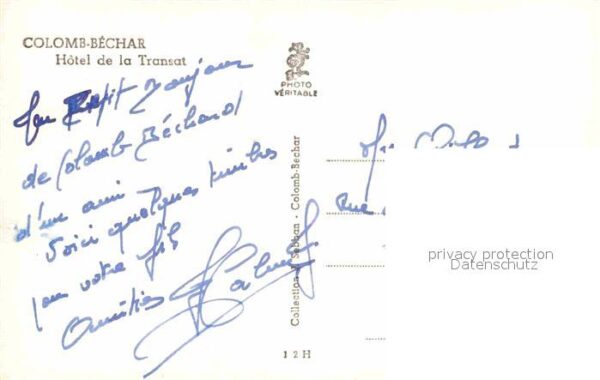 COLOMB-BÉCHAR
Hôtel de la Transat
PHOTO
VÉRITABLE
Petit bonjour
de Colomb Béchard
d'un ami
Voici quelques timbres
pour votre fils
Amitiés
Collection J. Sebban - Colomb-Béchar
12H
Rue
privacy protection
Datenschutz